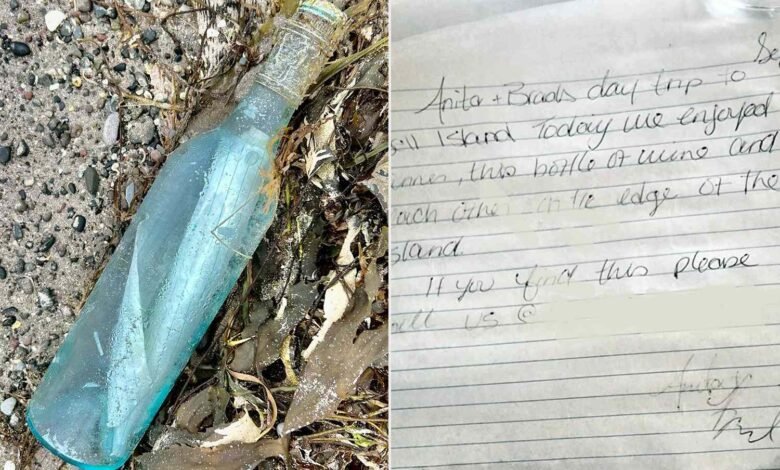 Se
Anita + Brads day trip to
ill Island Today we enjoyed
inner, this bottle of wine and
each other on the edge of the
sland.
If you find this please
all us @
Anita
Brad